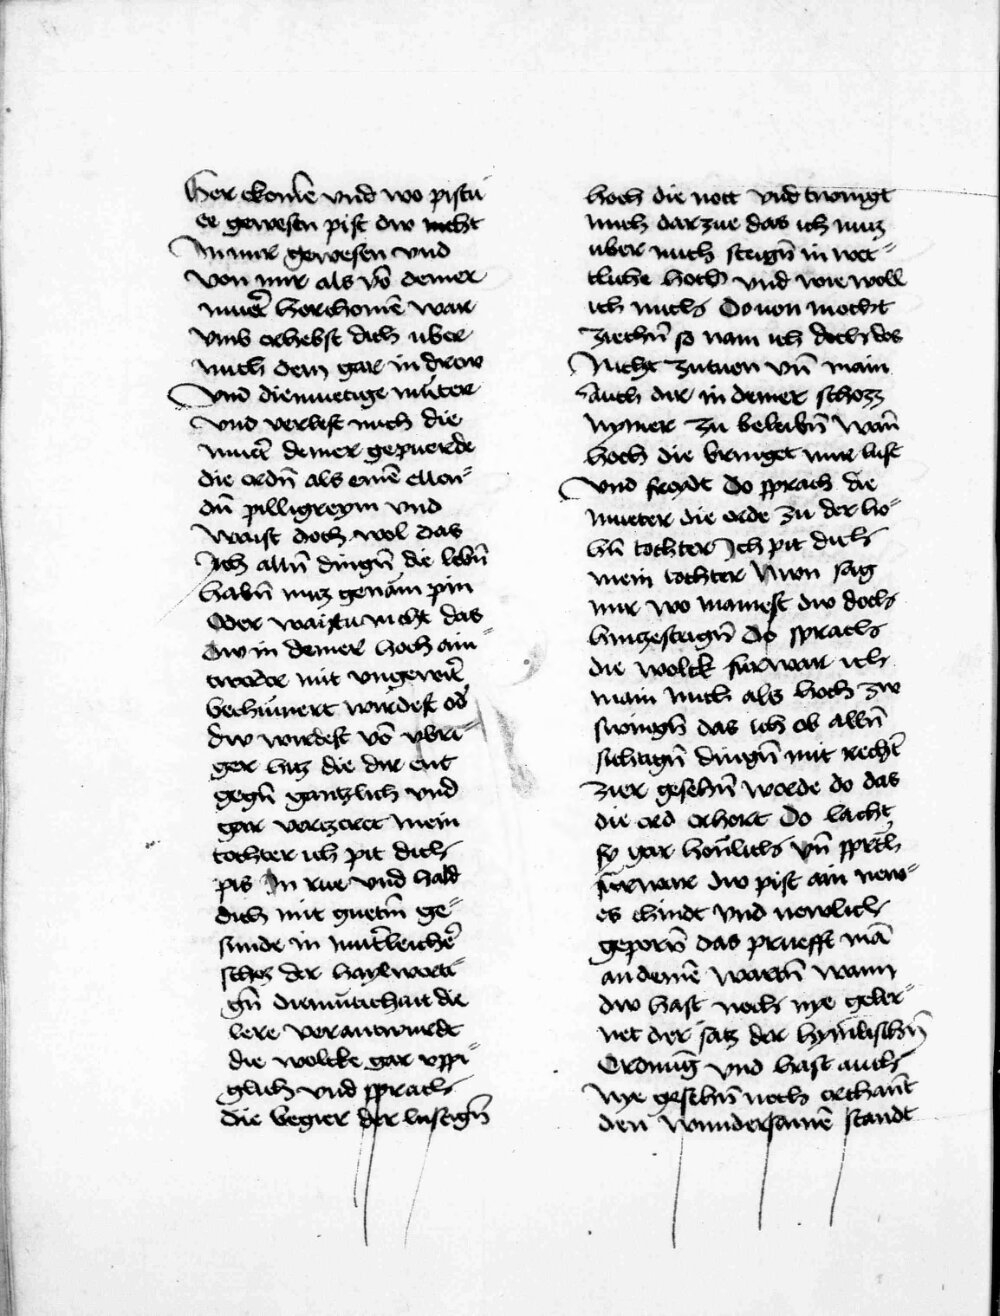 Her ekomē vnd wo pistu
ee gewesen pist dw nicht
In mir gewesen vnd
von mir als võ deiner
mueſ herchomē war
vmb erhebst dich uber
mich dem gar in drew
Vnd diemuetige muter
vnd verlest mich die
mueſ deiner gepuerde
die erdñ als einē ellen⸗
dñ pilligreym vnd
waist doch wol das
Ich allñ dingñ die lebñ
habñ muz genäm pin
Oder waistu nicht das
dw in deiner hoch ain⸗
tweder mit vngewiſ
bechüm̄ert wirdest od̄
dw wirdest võ vbri⸗
ger hitz die dir ent
gegñ gantzlich vnd
gar verczeret mein
tochter ich pit dich
pis In rue vnd hald
dich mit guetm̄ ge⸗
sunde in muēleichē
schoz der haylwerti⸗
gñ diemüetichait die
lere verantwurdt
die wolcke gar vppi⸗
glich vnd sprach
die begier der lustigñ
hoch die nott vnd twingt
mich darzue das ich muz
uber mich steigñ in wert⸗
tliche hoch vnd wie woll
ich michs douon mocht
ziechñ so nam ich doch des
Nicht zutuen vñ main
Auch dir in deiner schozz
Nymer zu beleibñ wañ
hoch die bringet mir lust
vnd freydt Do sprach die
mueter die erde zu der ho⸗
hñ tochter Ich pit dich
mein tochter Nwn sag
mir wo mainest dw doch
hinzesteigñ Do sprach
die wolck fürwar ich
main mich als hoch zw
swingñ das ich ob allñ
sichtigñ dingñ mit rechē
zier gesehñ werde do das
die erd erhort Do lacht
sy gar hönlich vñ sprch
fürwar dw pist ain new⸗
es chindt vnd newlich
geporñ das prüefft mā
an deinē wartñ wann
dw hast noch nye geler⸗
net der satz der hymlischñ
Ordnūg vnd hast auch
Nye gesehñ noch erchānt
den wundersamē standt